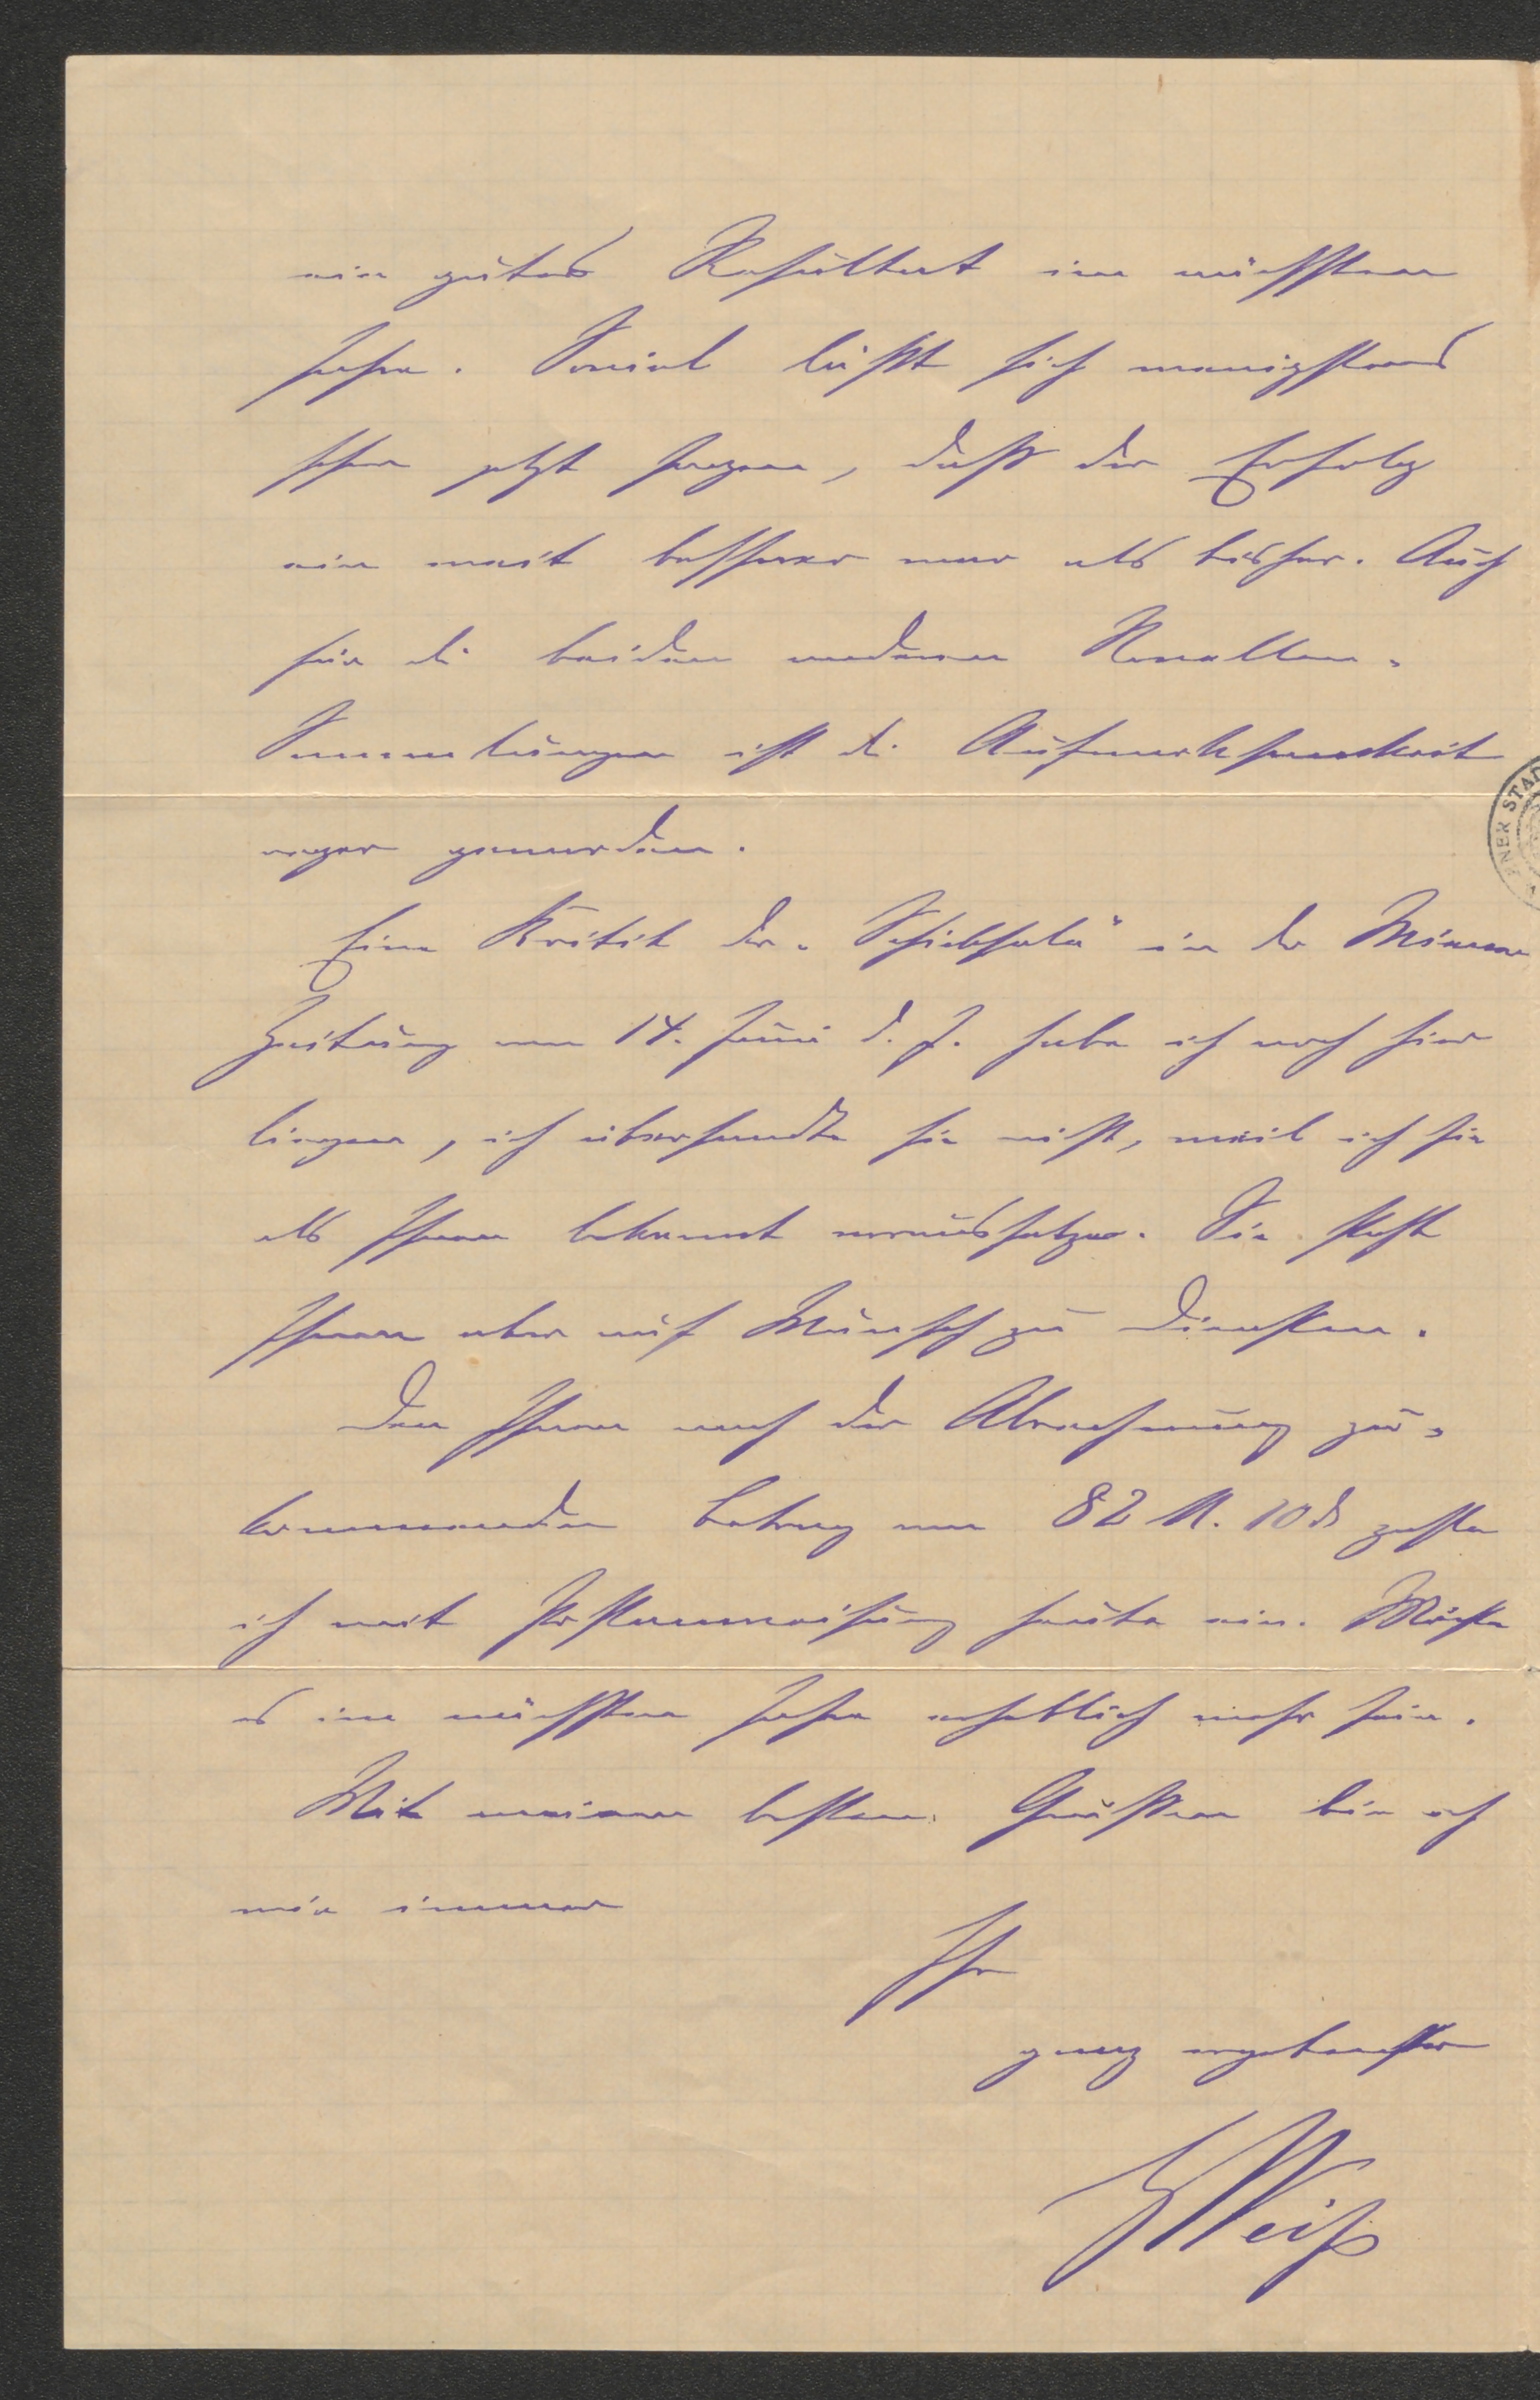 ein gutes Resultat im nächsten
Jahre. Soviel läßt sich wenigstens
schon jetzt sagen, daß der Erfolg
ein weit besserer war als bisher. Auch
für die beiden anderen Novellen-
Sammlungen ist die Aufmerksamkeit
reger geworden.
Eine Kritik der „Schicksale“ in der Wiener
Zeitung vom 14. Juni d. J. habe ich noch hier
liegen, ich übersandte sie nicht, weil ich sie
als Ihnen bekannt voraussetzte. Sie steht
Ihnen aber auf Wunsch zu Diensten.
Den Ihnen nach der Abrechnung zu-
kommenden Betrag von 82 M. 10 ₰ zahlte
ich mit Postanweisung heute ein. Möchte
es im nächsten Jahre erheblich mehr sein.
Mit meinen besten Grüßen bin ich
wie immer
Ihr
ganz ergebenster
Weiß
NER STAD